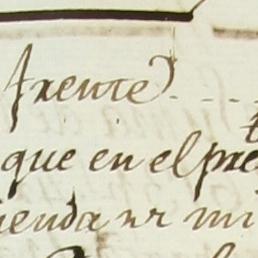 frente
que en el pre
ienda nr mi